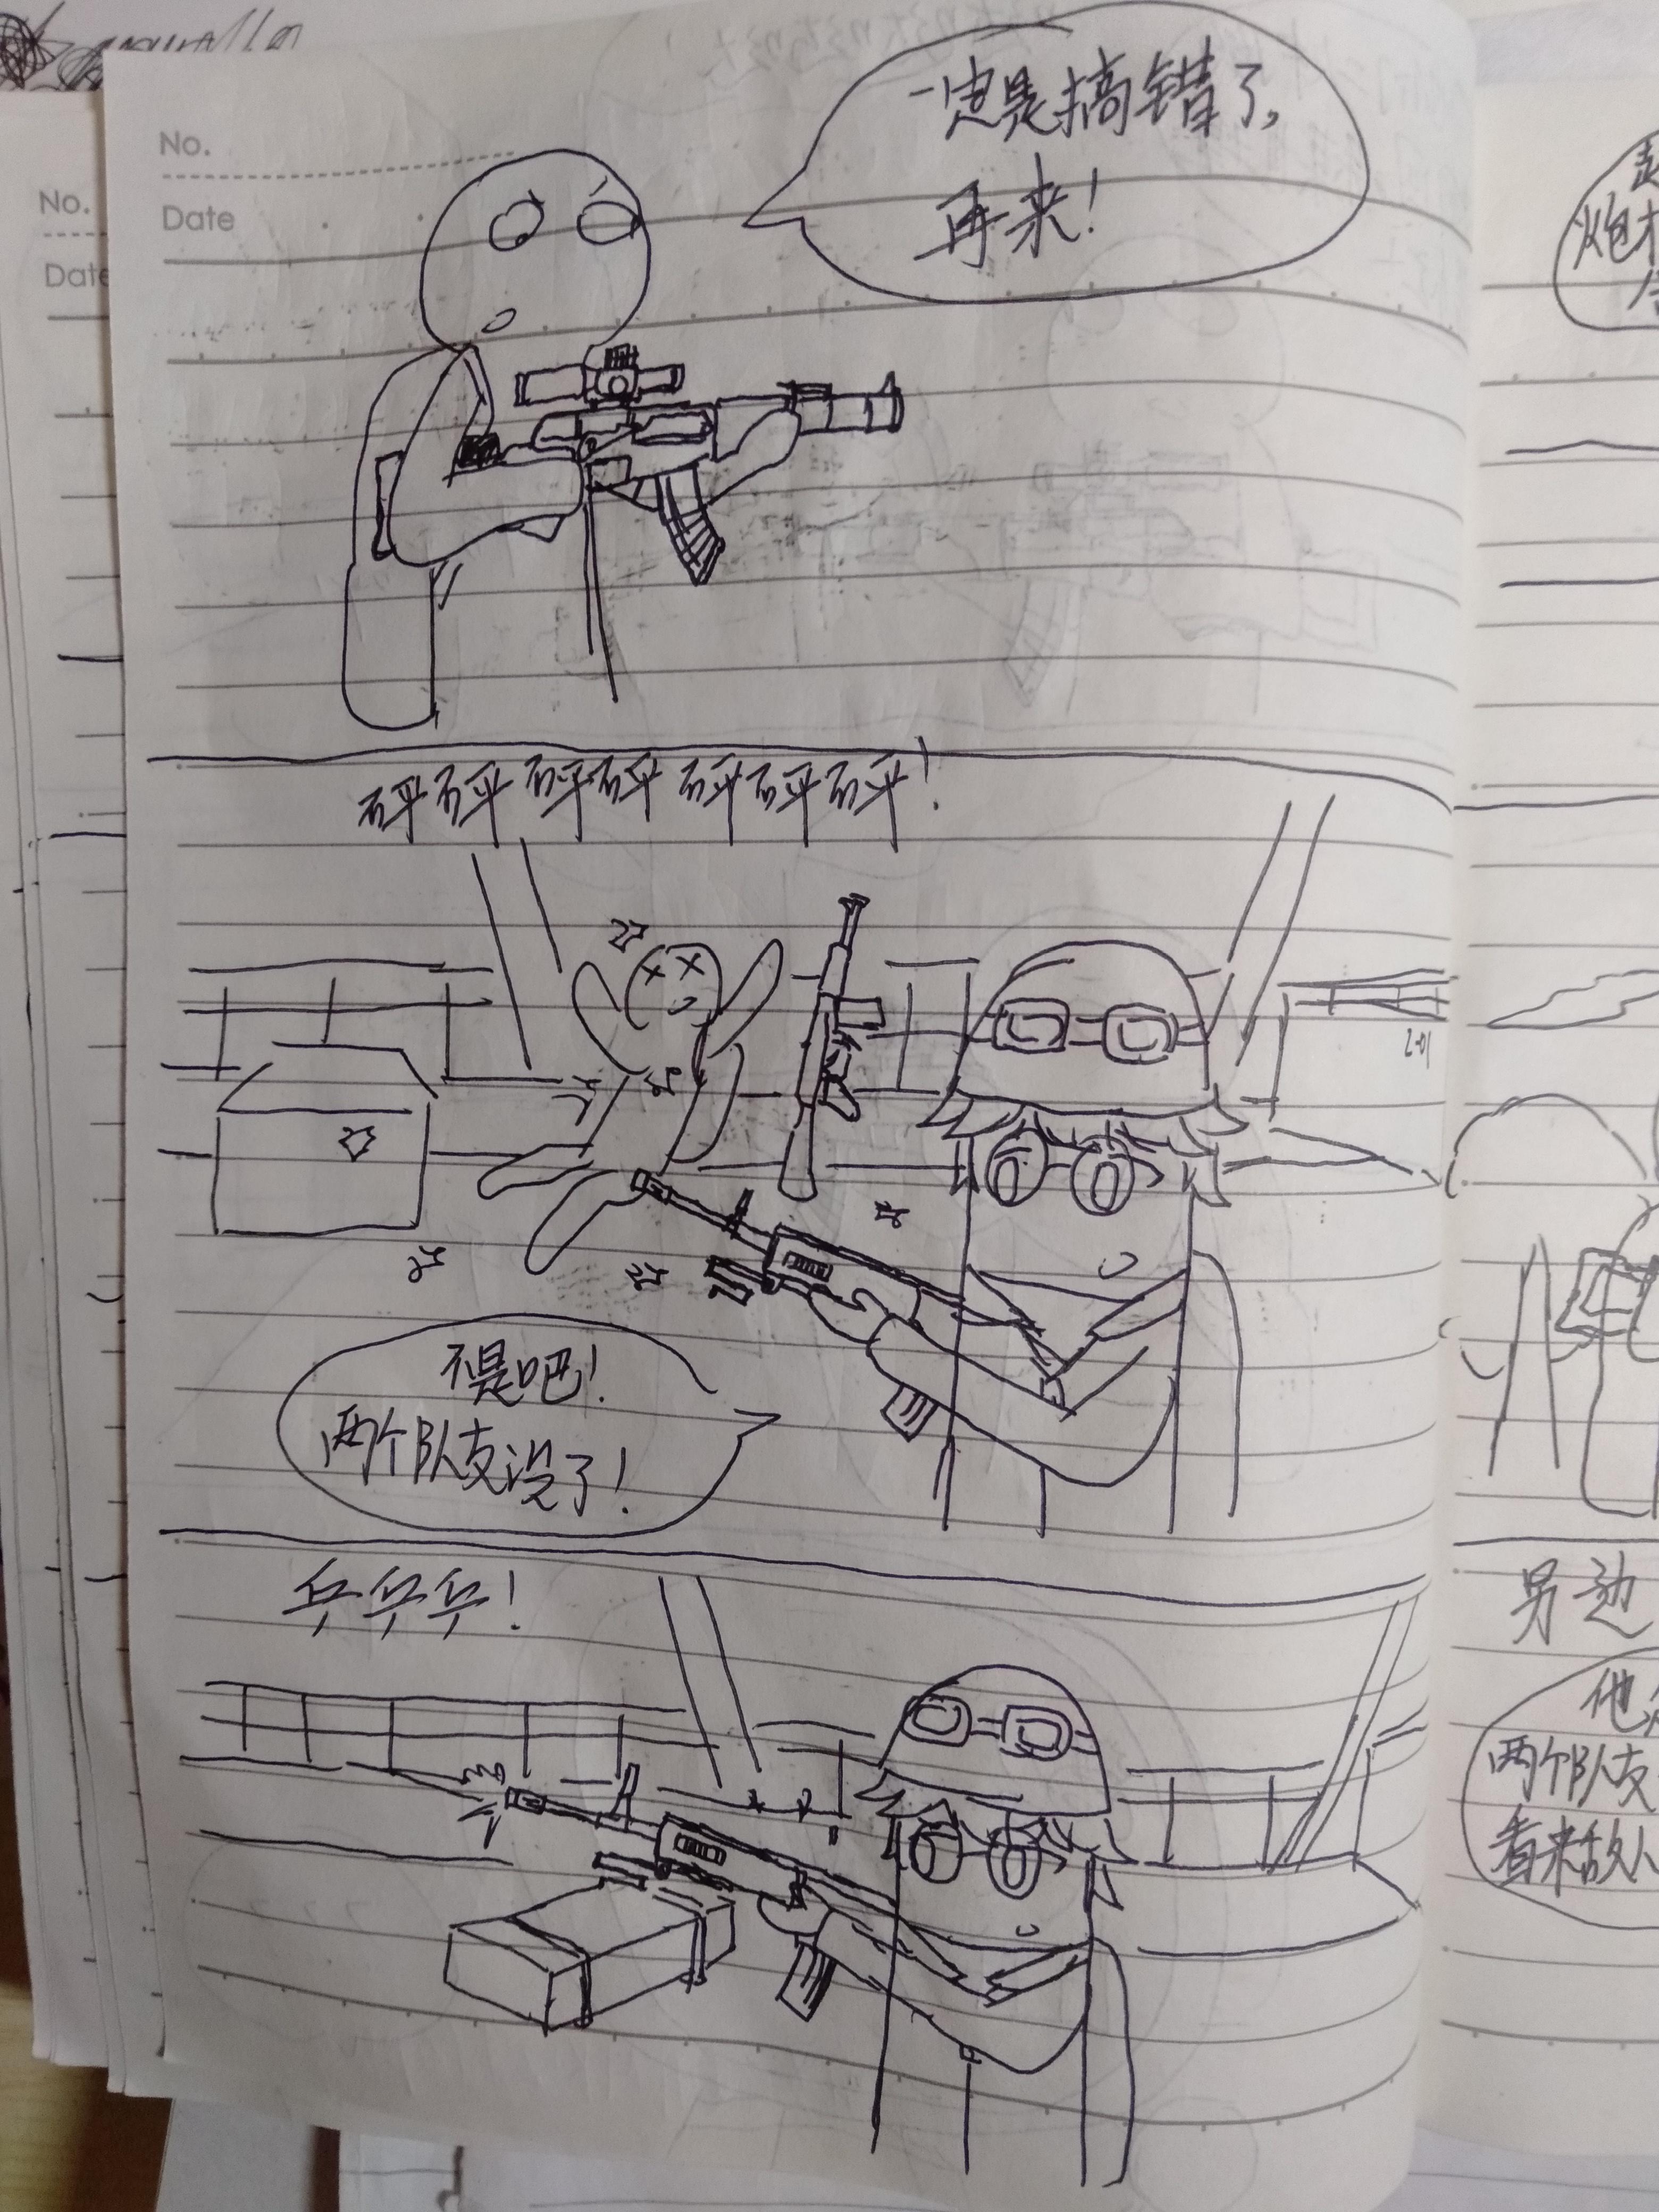 No.
Date
No.
Date
一定是搞错了,
再来!
砰砰砰砰砰砰砰!
不是吧!
两个队友没了!
乒乒乒!
炮
另边
他
两个队友
看来敌人